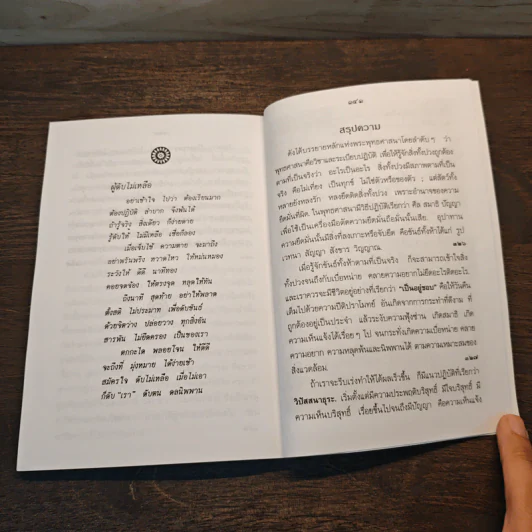 ผู้ดับไม่เหลือ
อย่าเข้าใจ ไปว่า ต้องเรียนมาก
ต้องปฏิบัติ ลำบาก จึงพ้นได้
ถ้ารู้จริง สิ่งเดียว ก็ง่ายดาย
รู้ดับให้ ไม่มีเหลือ เชื่อก็ลอง
เมื่อเจ็บไข้ ความตาย จะมาถึง
อย่าพรั่นพรึง หวาดไหว ให้หม่นหมอง
ระวังให้ ดีดี นาทีทอง
คอยจดจ้อง ให้ตรงจุด หลุดให้ทัน
ถึงนาที สุดท้าย อย่าให้พลาด
ตั้งสติ ไม่ประมาท เพื่อดับขันธ์
ด้วยจิตว่าง ปล่อยวาง ทุกสิ่งอัน
สารพัน ไม่ยึดครอง เป็นของเรา
ตกกะได พลอยโจน ให้ดีดี
จะถึงที่ มุ่งหมาย ได้ง่ายเข้า
สมัครใจ ดับไม่เหลือ เมื่อไม่เอา
ก็ดับ "เรา" ดับตน ดลนิพพาน
สรุปความ
ดังได้บรรยายหลักแห่งพระพุทธศาสนาโดยลำดับๆ ว่า
พุทธศาสนาคือวิชาและระเบียบปฏิบัติ เพื่อให้รู้จักสิ่งทั้งปวงถูกต้อง
ตามที่เป็นจริงว่า อะไรเป็นอะไร สิ่งทั้งปวงมีสภาพตามที่เป็น
จริง คือไม่เที่ยง เป็นทุกข์ ไม่ใช่ตัวหรือของตัว ; แต่สัตว์ทั้ง
หลายยังหลงรัก หลงยึดติดสิ่งทั้งปวง เพราะอำนาจของความ
ยึดมั่นที่ผิด. ในพุทธศาสนามีวิธีปฏิบัติเรียกว่า ศีล สมาธิ ปัญญา
เพื่อใช้เป็นเครื่องมือตัดความยึดมั่นถือมั่นนั้นเสีย. อุปาทาน
ความยึดมั่นนั้นมีสิ่งที่ลงเกาะหรือจับยึด คือขันธ์ทั้งห้าได้แก่ รูป
เวทนา สัญญา สังขาร วิญญาณ.
เมื่อรู้จักขันธ์ทั้งห้าตามที่เป็นจริง ก็จะสามารถเข้าใจสิ่ง
ทั้งปวงจนถึงกับเบื่อหน่าย คลายความอยากไม่ยึดอะไรติดอะไร.
และเราควรจะมีชีวิตอยู่อย่างที่เรียกว่า "เป็นอยู่ชอบ" คือให้วันคืน
เต็มไปด้วยความปีติปราโมทย์ อันเกิดจากการกระทำที่ดีงาม ที่
ถูกต้องอยู่เป็นประจำ แล้วระงับความฟุ้งซ่าน เกิดสมาธิ เกิด
ความเห็นแจ้งได้เรื่อยๆ ไป จนกระทั่งเกิดความเบื่อหน่าย คลาย
ความอยาก ความหลุดพ้นและนิพพานได้ ตามความเหมาะสมของ
สิ่งแวดล้อม.
๑๒๗
ถ้าเราจะรีบเร่งทำให้ได้ผลเร็วขึ้น ก็มีแนวปฏิบัติที่เรียกว่า
วิปัสสนาธุระ. เริ่มตั้งแต่มีความประพฤติบริสุทธิ์ มีใจบริสุทธิ์ มี
ความเห็นบริสุทธิ์ เรื่อยขึ้นไปจนถึงมีปัญญา คือความเห็นแจ้ง